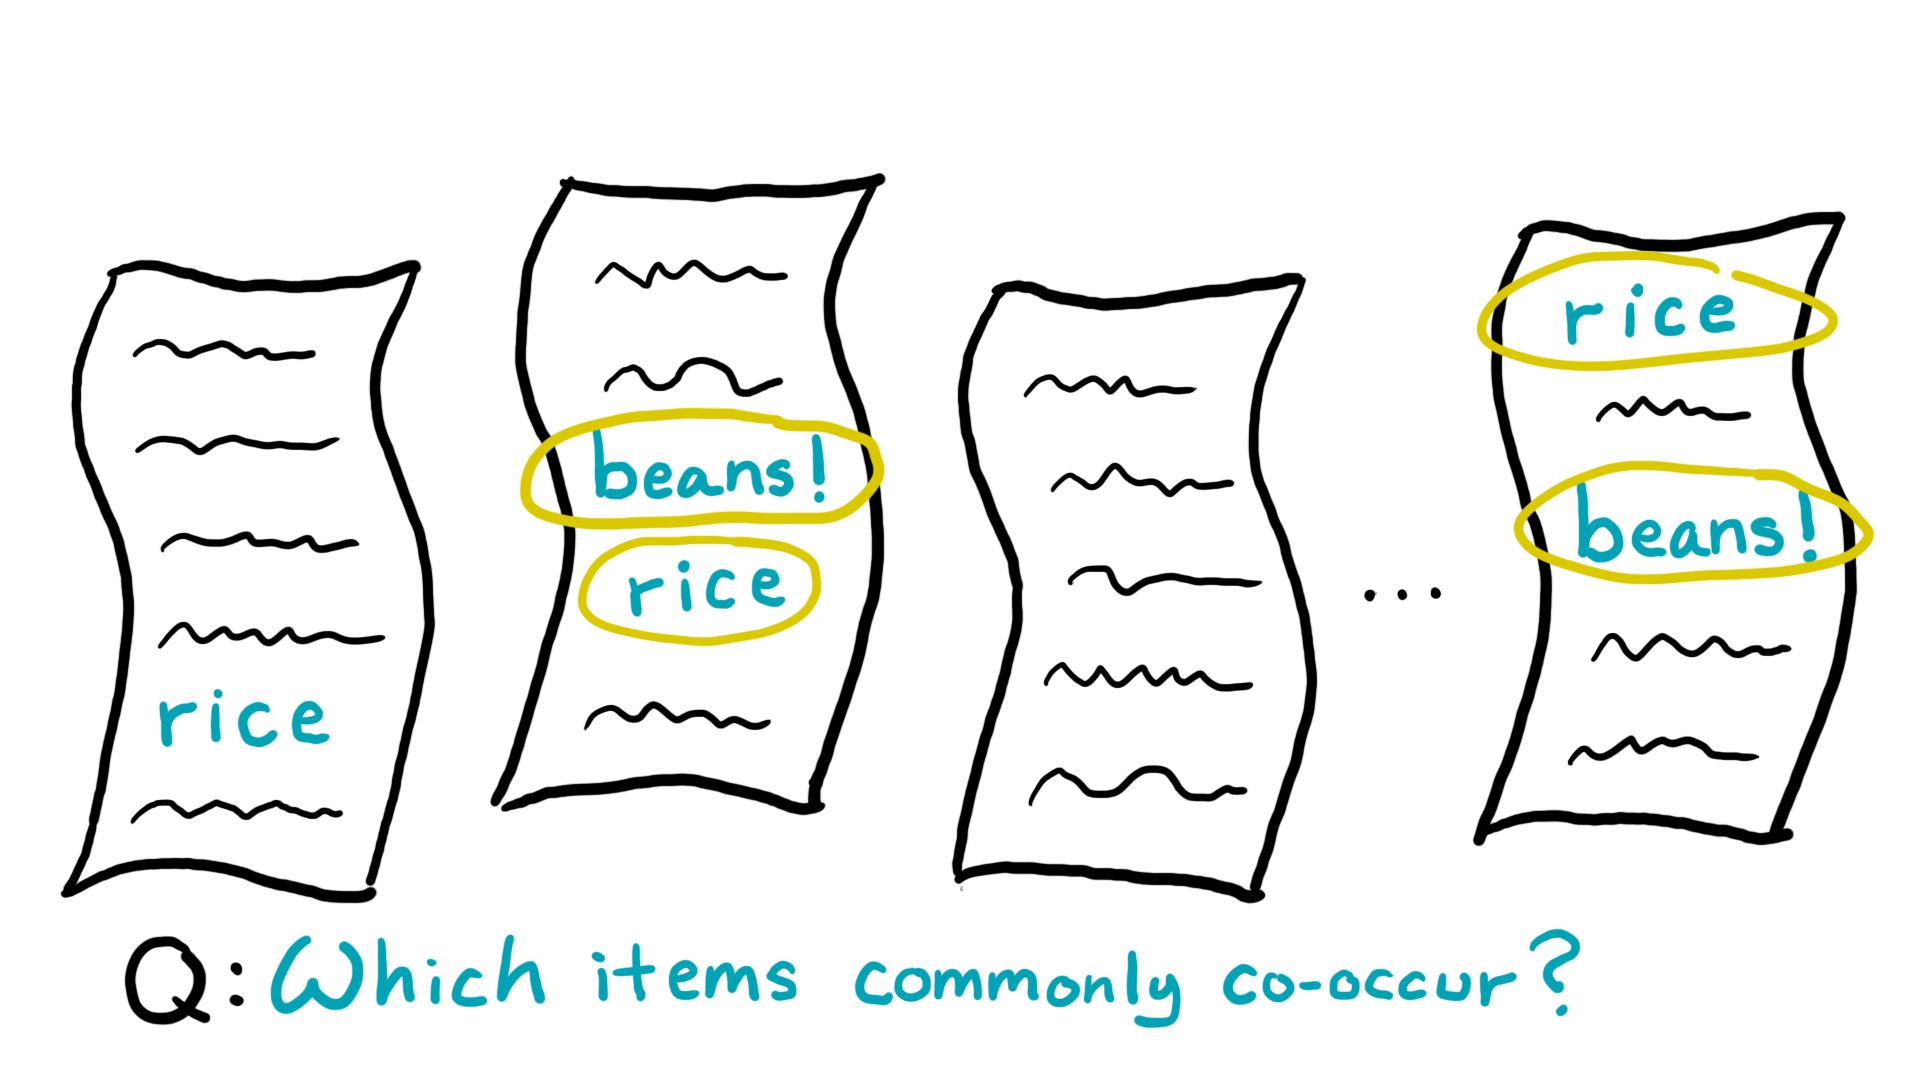 rice
beans!
rice
...
rice
beans!
Q: Which items commonly co-occur?